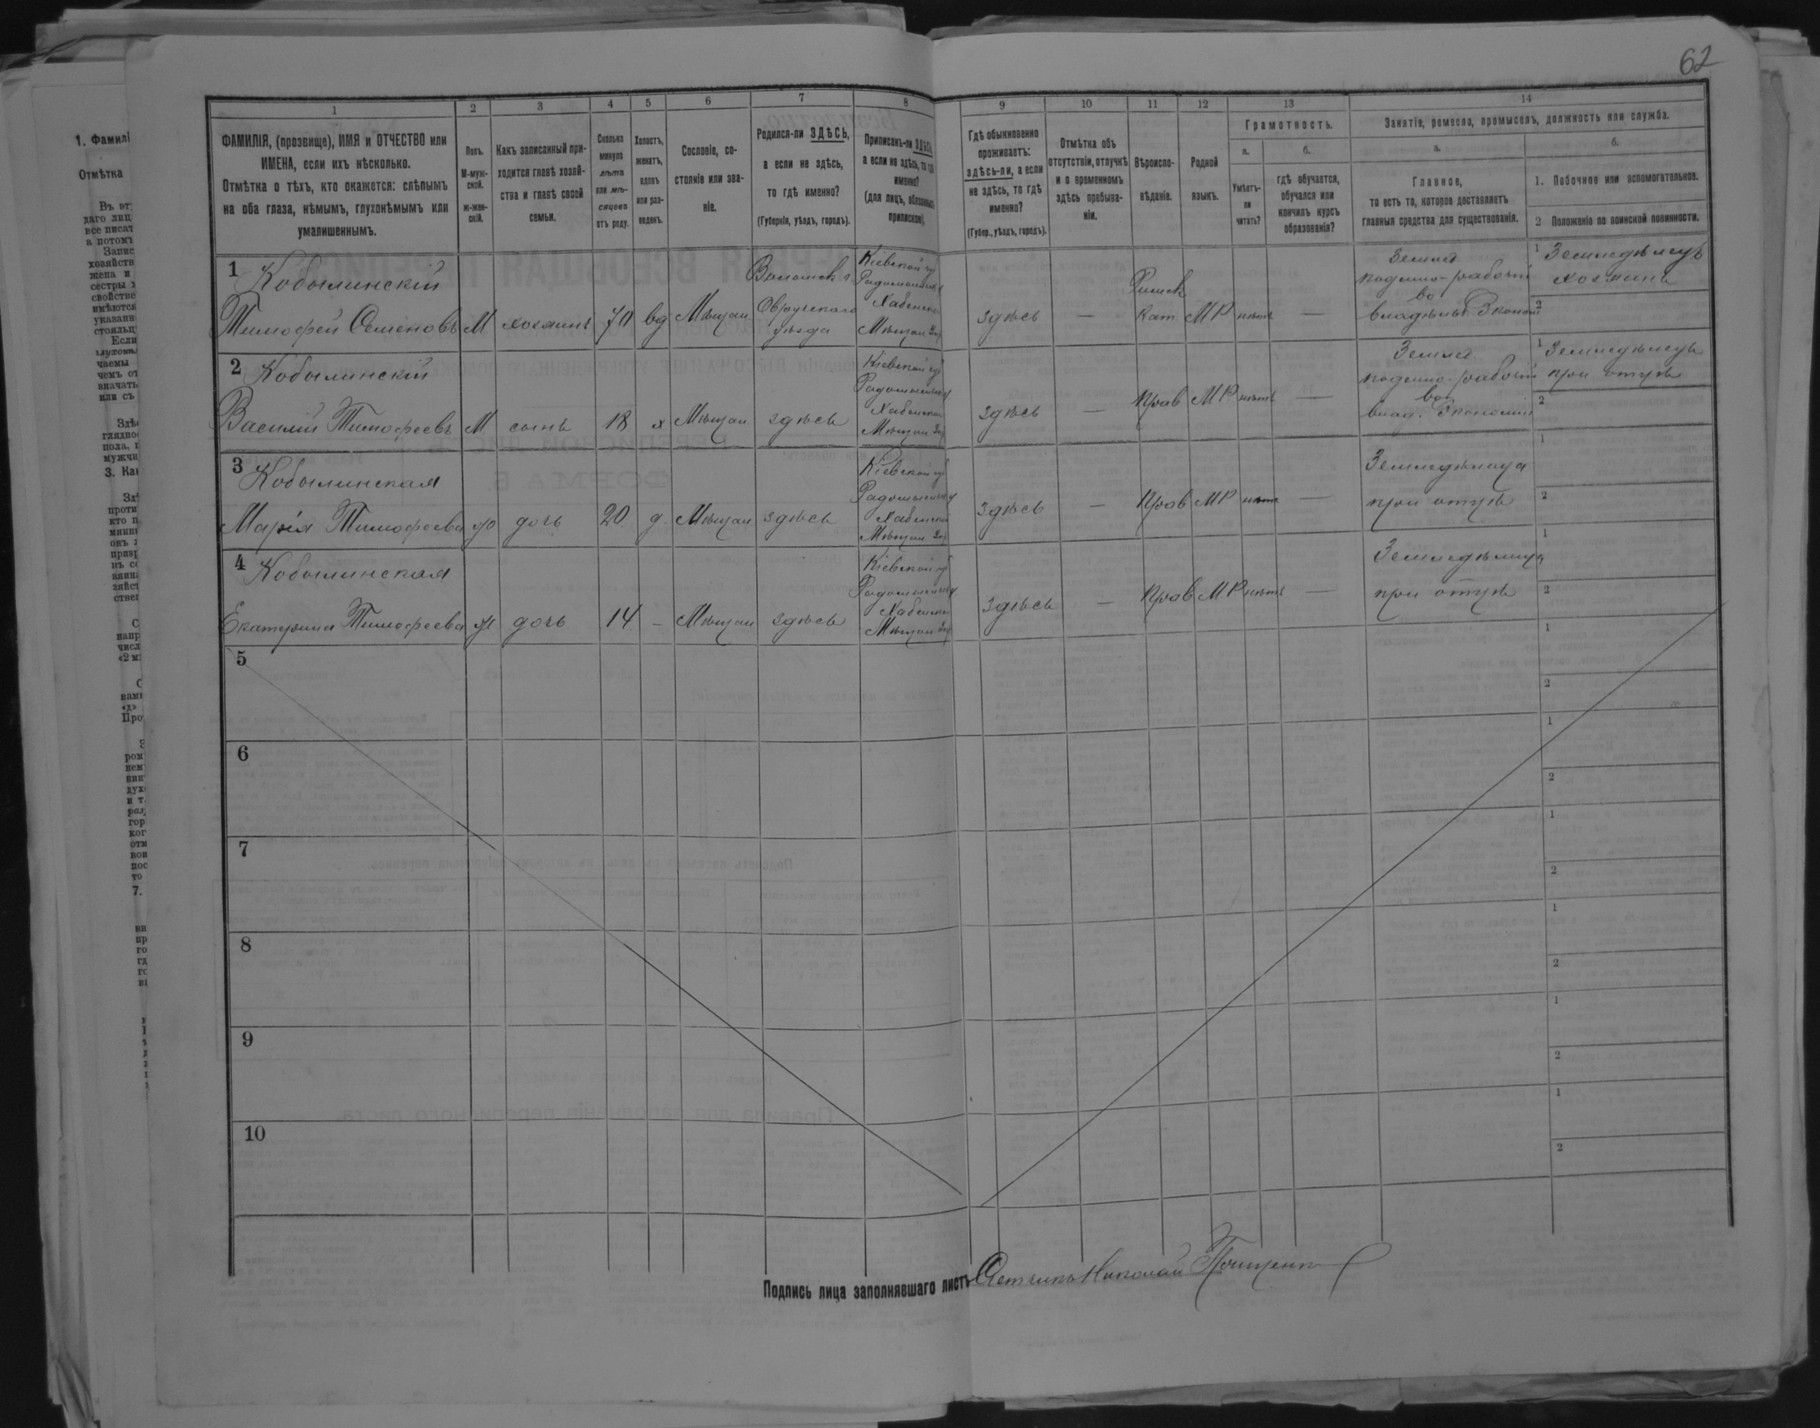 62
1 2 3 4 5 6 7 8 9 10 11 12 13 14
ФАМИЛІЯ, (прозвище), ИМЯ и ОТЧЕСТВО или
ИМЕНА, если ихъ нѣсколько.
Отмѣтка о тѣхъ, кто окажется: слѣпымъ
на оба глаза, нѣмымъ, глухонѣмымъ или
умалишеннымъ.
Полъ.
М-муж-
ской.
ж-жен-
скій.
Какъ записанный при-
ходится главѣ хозяй-
ства и главѣ своей
семьи.
Сколько
минуло
лѣтъ
или мѣ-
сяцевъ
отъ роду.
Холостъ,
женатъ,
вдовъ
или раз-
веденъ.
Сословіе, со-
стояніе или зва-
ніе.
Родился-ли ЗДѢСЬ,
а если не здѣсь,
то гдѣ именно?
(Губернія, уѣздъ, городъ).
Приписанъ-ли ЗДѢСЬ,
а если не здѣсь, то гдѣ
именно?
(для лицъ, обязанныхъ
припискою).
Гдѣ обыкновенно
проживаетъ:
здѣсь-ли, а если
не здѣсь, то гдѣ
именно?
(Губер., уѣздъ, городъ).
Отмѣтка объ
отсутствіи, отлучкѣ
и о временномъ
здѣсь пребыва-
ніи.
Вѣроиспо-
вѣданіе.
Родной
языкъ.
Грамотность.
а.
Умѣетъ-
ли
читать?
б.
гдѣ обучается,
обучался или
кончилъ курсъ
образованія?
Занятіе, ремесло, промыселъ, должность или служба.
а.
Главное,
то есть то, которое доставляетъ
главныя средства для существованія.
б.
1. Побочное или вспомогательное.
2 Положеніе по воинской повинности.
1 Кобылинскій
Тимофей Семеновъ М хозяинъ 70 вд Мѣщан
Волынск г.
Овручскаго
уѣзда
Кіевской гу
Радомысльск
Хабенск
Мѣщан
здѣсь —
Римск
Кат МР нѣтъ —
Земля
поденно-рабочій
во
владѣльч Эконом
1 Земледѣлецъ
хозяинъ
2
2 Кобылинскій
Василій Тимофеевъ М сынъ 18 х Мѣщан здѣсь
Кіевской гу
Радомысльск
Хабенск
Мѣщан
здѣсь — Прав МР нѣтъ —
Земля
поденно-рабочій
во
влад. Экономіи
1 Земледѣлецъ
при отцѣ
2
3 Кобылинская
Марія Тимофеева ж дочь 20 д Мѣщан здѣсь
Кіевской гу
Радомысльск
Хабенск
Мѣщан
здѣсь — Прав МР нѣтъ —
Земледѣлица
при отцѣ
1
2
4 Кобылинская
Екатерина Тимофеева ж дочь 14 — Мѣщан здѣсь
Кіевской гу
Радомысльск
Хабенск
Мѣщан
здѣсь — Прав МР нѣтъ —
Земледѣлица
при отцѣ
1
2
5
1
2
6
1
2
7
1
2
8
1
2
9
1
2
10
1
2
Подпись лица заполнявшаго листъ Счетчикъ Николай